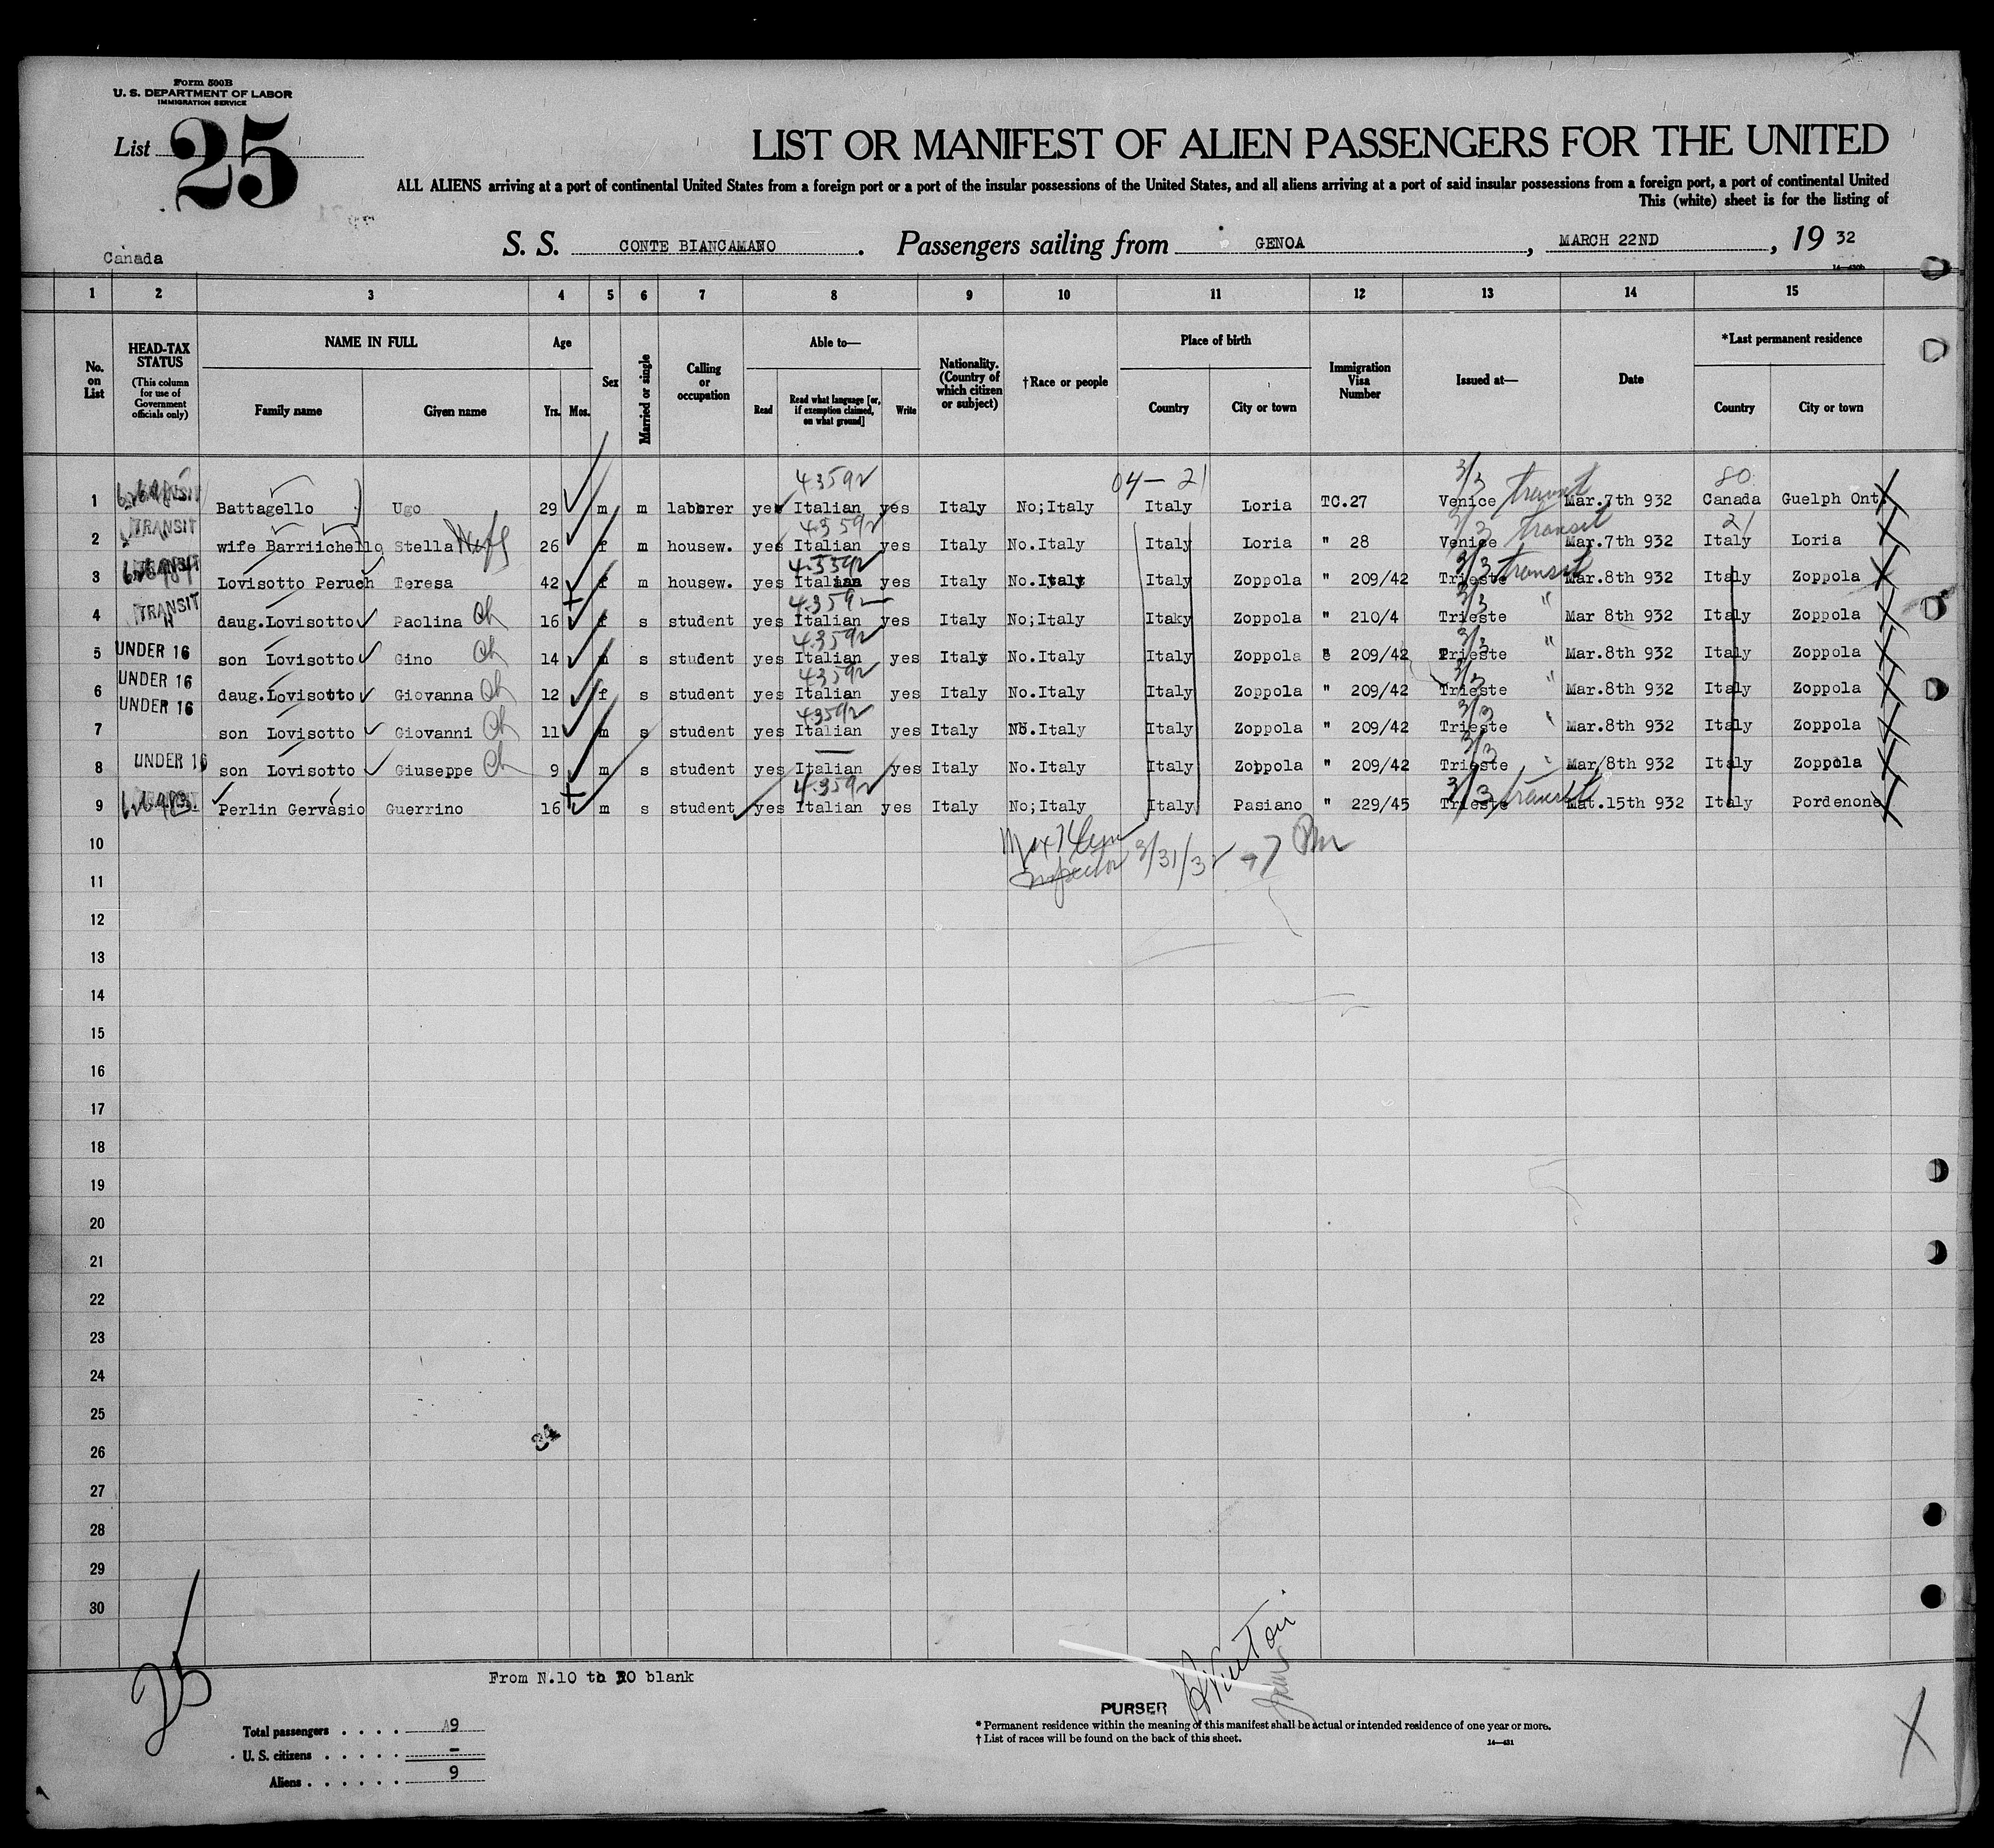 Form 500B
U. S. DEPARTMENT OF LABOR
IMMIGRATION SERVICE
List 25
LIST OR MANIFEST OF ALIEN PASSENGERS FOR THE UNITED
ALL ALIENS arriving at a port of continental United States from a foreign port or a port of the insular possessions of the United States, and all aliens arriving at a port of said insular possessions from a foreign port, a port of continental United
This (white) sheet is for the listing of
S. S. CONTE BIANCAMANO . Passengers sailing from GENOA , MARCH 22ND , 19 32
Canada
14—430b
1 2 3 4 5 6 7 8 9 10 11 12 13 14 15
No. on List
HEAD-TAX STATUS
(This column for use of Government officials only)
NAME IN FULL
Family name Given name
Age
Yrs. Mos.
Sex
Married or single
Calling or occupation
Able to—
Read Read what language [or, if exemption claimed, on what ground] Write
Nationality. (Country of which citizen or subject)
†Race or people
Place of birth
Country City or town
Immigration Visa Number
Issued at—
Date
*Last permanent residence
Country City or town
43592 04—21 3/3 80
1 TRANSIT Battagello Ugo 29 m m laborer yes Italian yes Italy No;Italy Italy Loria TC.27 Venice transit Mar.7th 932 Canada Guelph Ont.
43592 3/3 21
2 TRANSIT wife Barriichello Stella Wife 26 f m housew. yes Italian yes Italy No.Italy Italy Loria " 28 Venice transit Mar.7th 932 Italy Loria
43592 3/3
3 TRANSIT Lovisotto Peruch Teresa 42 f m housew. yes Italian yes Italy No.Italy Italy Zoppola " 209/42 Trieste transit Mar.8th 932 Italy Zoppola
43592 3/3
4 TRANSIT daug.Lovisotto Paolina Ch 16 f s student yes Italian yes Italy No;Italy Itaky Zoppola " 210/4 Trieste " Mar 8th 932 Italy Zoppola
43592 3/3
5 UNDER 16 son Lovisotto Gino Ch 14 m s student yes Italian yes Italy No.Italy Italy Zoppola " 209/42 Trieste " Mar.8th 932 Italy Zoppola
43592 3/3
6 UNDER 16 daug.Lovisotto Giovanna Ch 12 f s student yes Italian yes Italy No.Italy Italy Zoppola " 209/42 Trieste " Mar.8th 932 Italy Zoppola
43592 3/3
7 UNDER 16 son Lovisotto Giovanni Ch 11 m s student yes Italian yes Italy No.Italy Italy Zoppola " 209/42 Trieste " Mar.8th 932 Italy Zoppola
3/3
8 UNDER 16 son Lovisotto Giuseppe Ch 9 m s student yes Italian yes Italy No.Italy Italy Zoppola " 209/42 Trieste " Mar/8th 932 Italy Zoppola
43592 3/3
9 Perlin Gervasio Guerrino 16 m s student yes Italian yes Italy No;Italy Italy Pasiano " 229/45 Trieste transit Mat.15th 932 Italy Pordenone
10
Inspector 3/31/32
11
12
13
14
15
16
17
18
19
20
21
22
23
24
25
34
26
27
28
29
30
25
From N.10 to 30 blank
Total passengers . . . . 9
U. S. citizens . . . . . –
Aliens . . . . . . 9
PURSER
* Permanent residence within the meaning of this manifest shall be actual or intended residence of one year or more.
† List of races will be found on the back of this sheet.
14—431